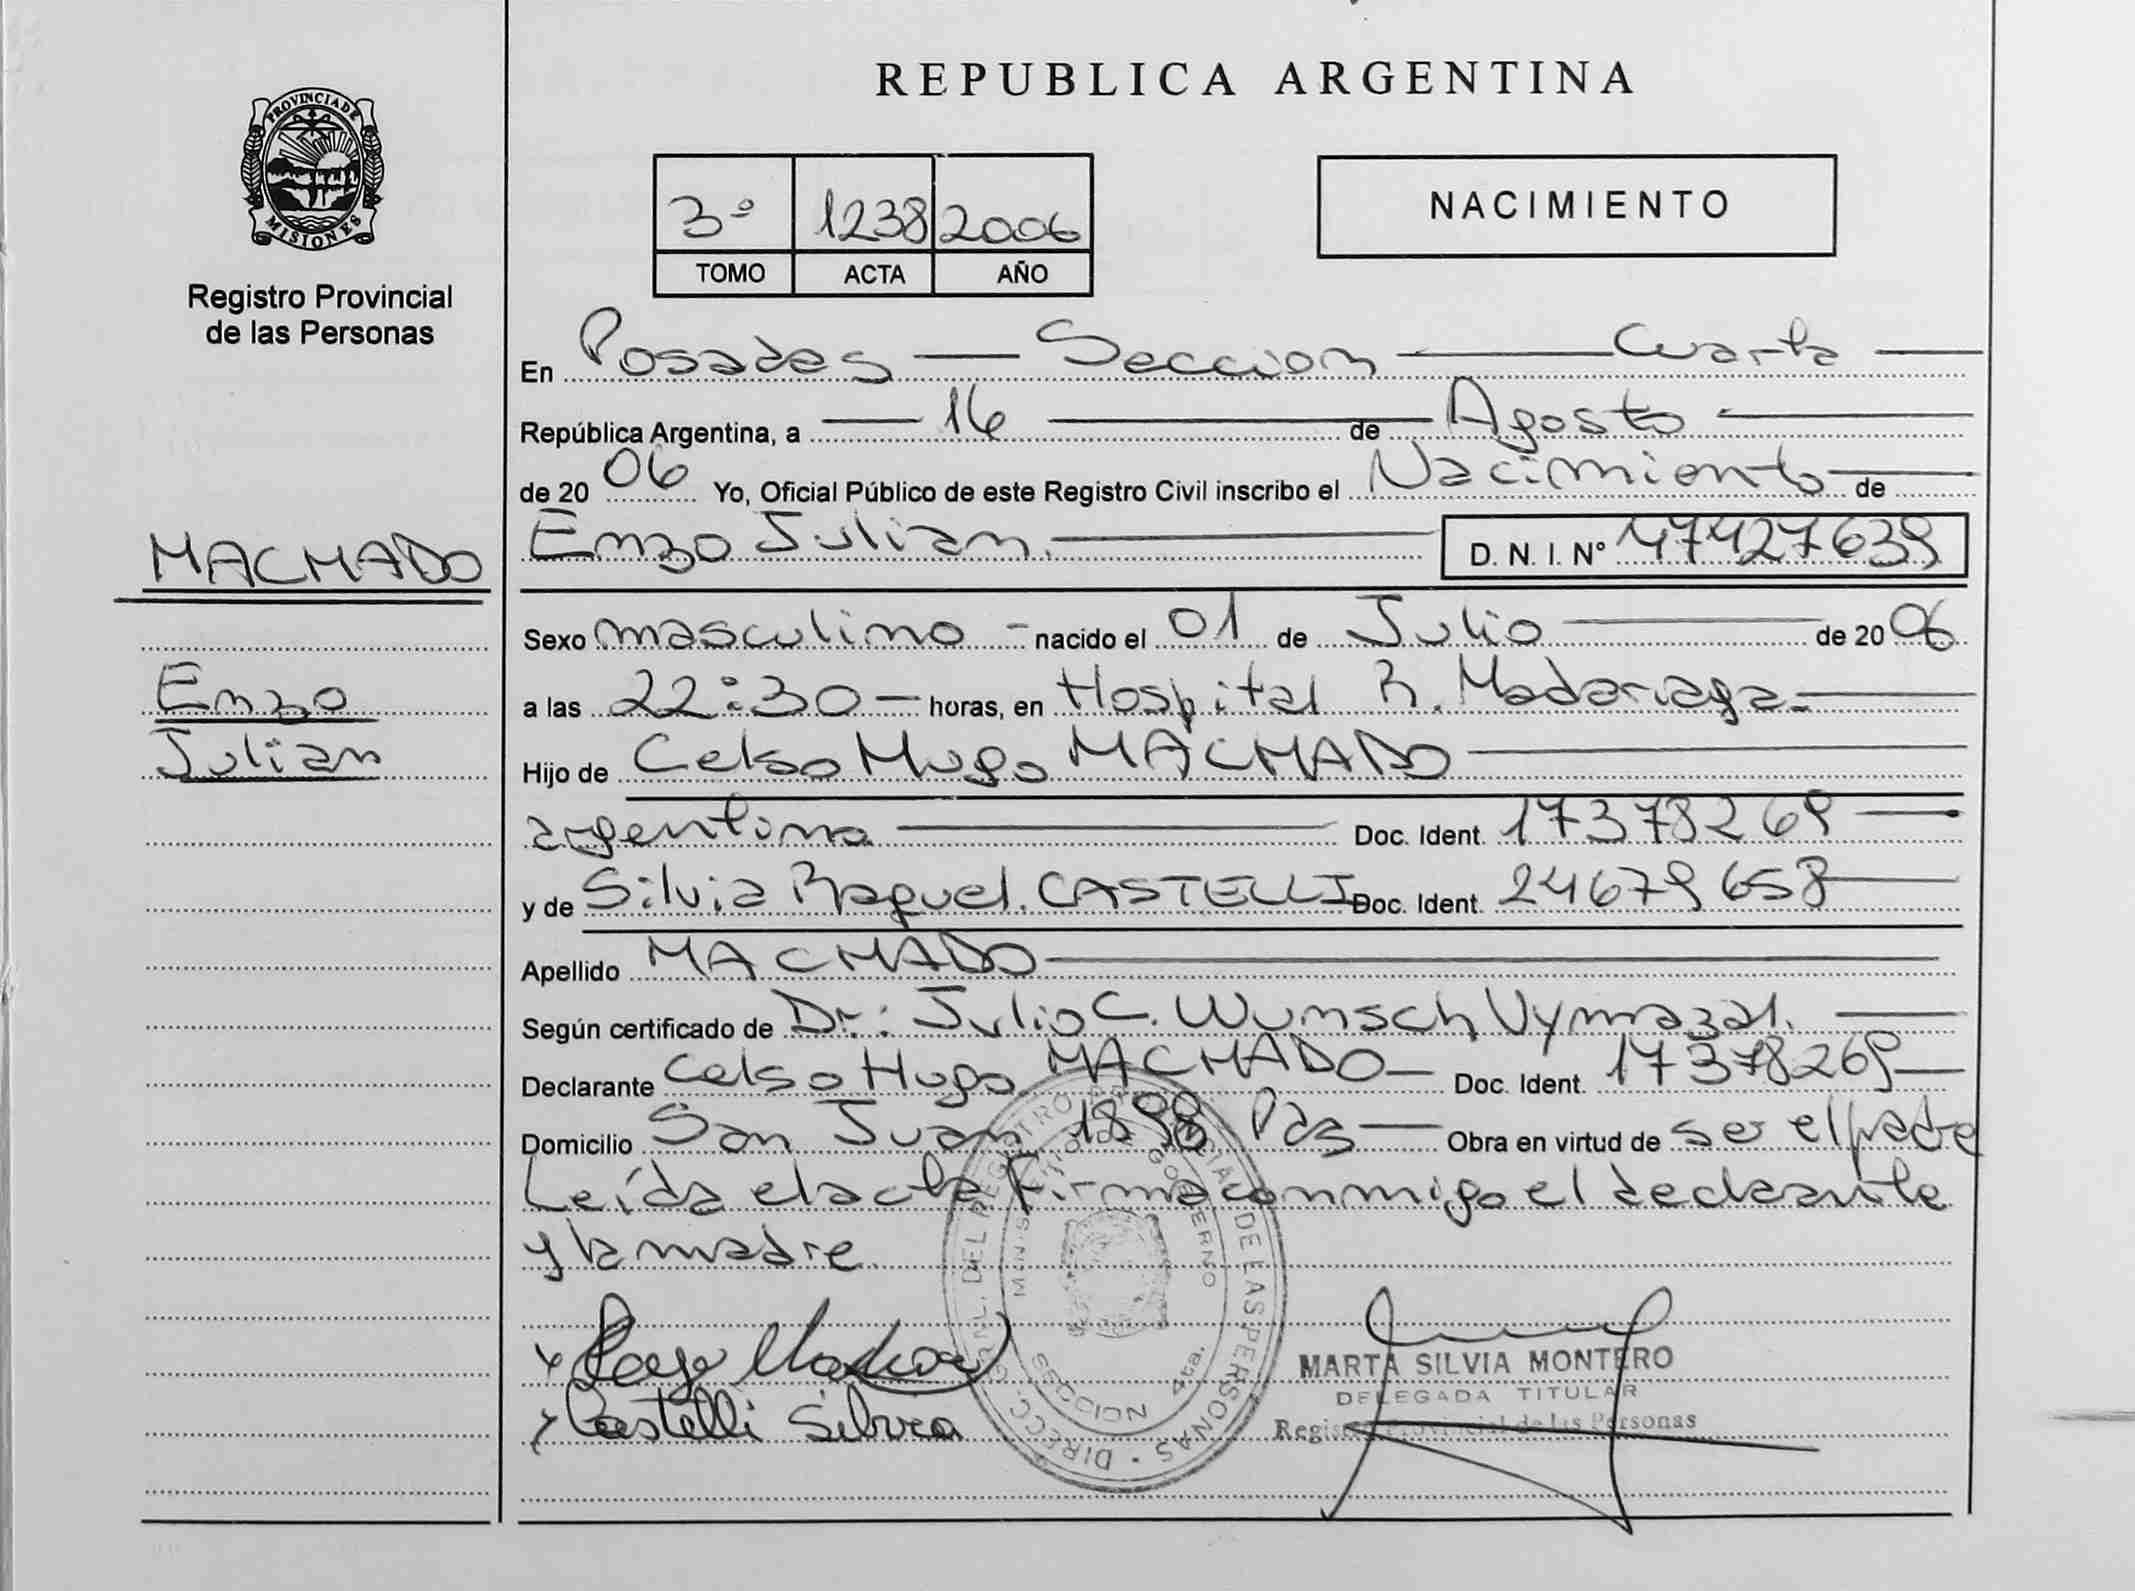 PROVINCIA DE
MISIONES
Registro Provincial
de las Personas
MACHADO
Enzo
Julian
REPUBLICA ARGENTINA
3º 1238 2006
TOMO ACTA AÑO
NACIMIENTO
En Posadas — Seccion — Cuarta —
República Argentina, a — 16 — de Agosto —
de 2006 Yo, Oficial Público de este Registro Civil inscribo el Nacimiento — de
Enzo Julian. — D. N. I. Nº 47427639
Sexo masculino - nacido el 01 de Julio — de 2006
a las 22:30 — horas, en Hospital R. Madariaga. —
Hijo de Celso Hugo MACHADO —
argentino — Doc. Ident. 17378269 —
y de Silvia Raquel. CASTELLI Doc. Ident. 24679658 —
Apellido MACHADO —
Según certificado de Dr.: Julio C. Wunsch Vymazal. —
Declarante Celso Hugo MACHADO — Doc. Ident. 17378269 —
Domicilio San Juan 1898 Pdas — Obra en virtud de ser el padre
Leída el acta firma conmigo el declarante
y la madre.
Castelli Silvia
DIRECC. GRAL. DEL REGISTRO PROVINCIAL DE LAS PERSONAS
MINISTERIO DE GOBIERNO
SECCION 4ta.
MARTA SILVIA MONTERO
DELEGADA TITULAR
Registro Provincial de las Personas